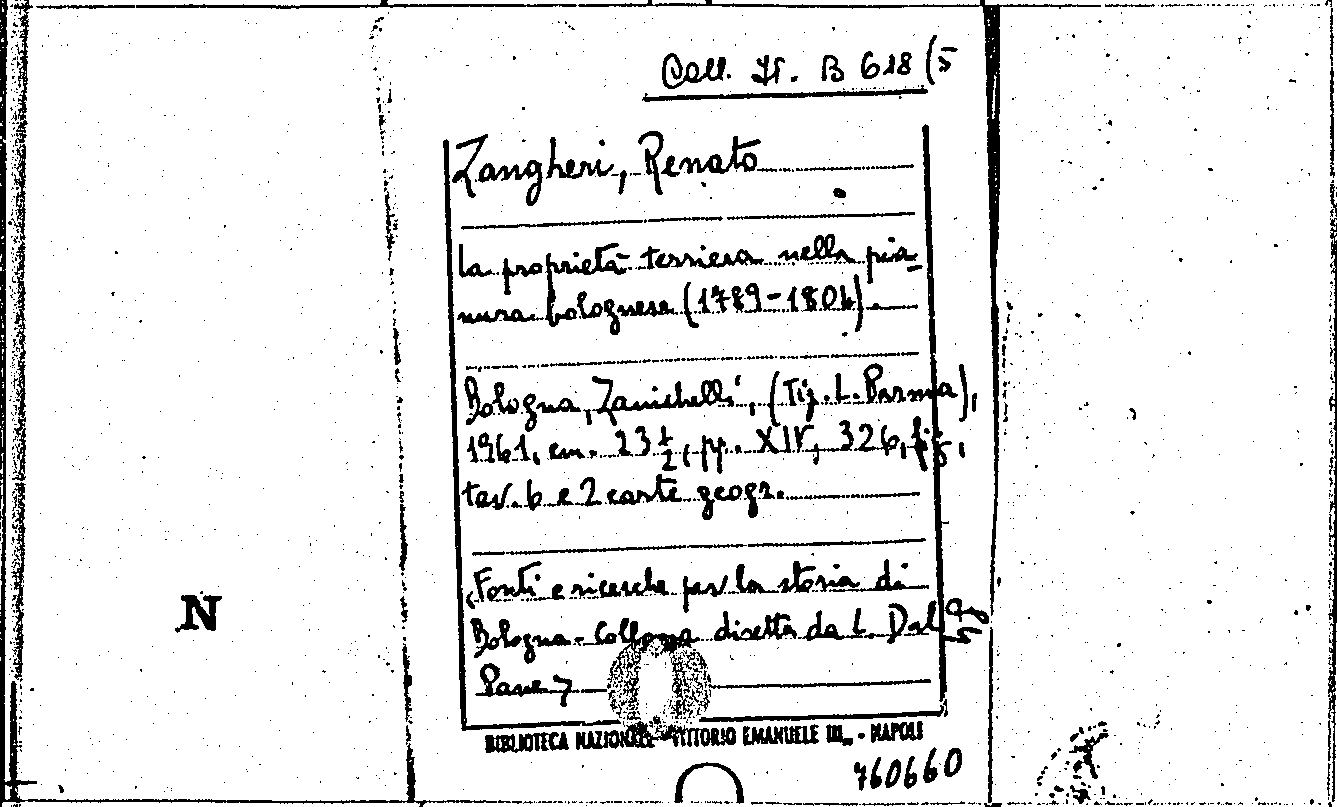 Coll. It. B 618 (5
Zangheri, Renato
La proprietà terriera nella pia-
nura bolognese (1789-1804).
Bologna, Zanichelli, (Tip. L. Parma),
1961, cm. 23 1/2, pp. XIV, 326, fig,
tav. 6 e 2 carte geogr.
<Fonti e ricerche per la storia di
Bologna-Collana diretta da L. Dal
Pane>
N
BIBLIOTECA NAZIONALE "VITTORIO EMANUELE III" - NAPOLI
760660